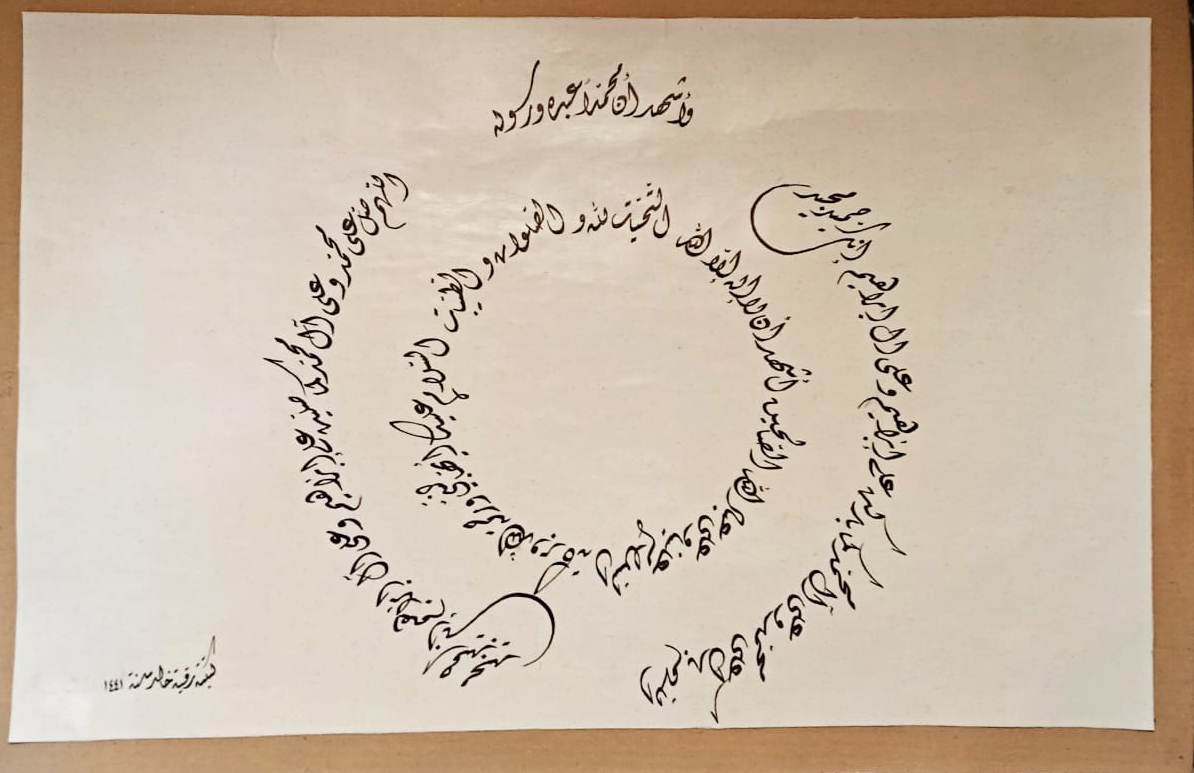 التحيات لله و الصلوات و الطيبات السلام عليك أيها النبي ورحمة الله وبركاته السلام علينا وعلى عباد الله الصالحين أشهد أن لا إله إلا الله
وأشهد أن محمداً عبده ورسوله
اللهم صل على محمد وعلى آل محمد كما صليت على إبراهيم وعلى آل إبراهيم إنك حميد مجيد
اللهم بارك على محمد وعلى آل محمد كما باركت على إبراهيم وعلى آل ابراهيم إنك حميد مجيد
كتبته رقية خالد سنة ١٤٤١